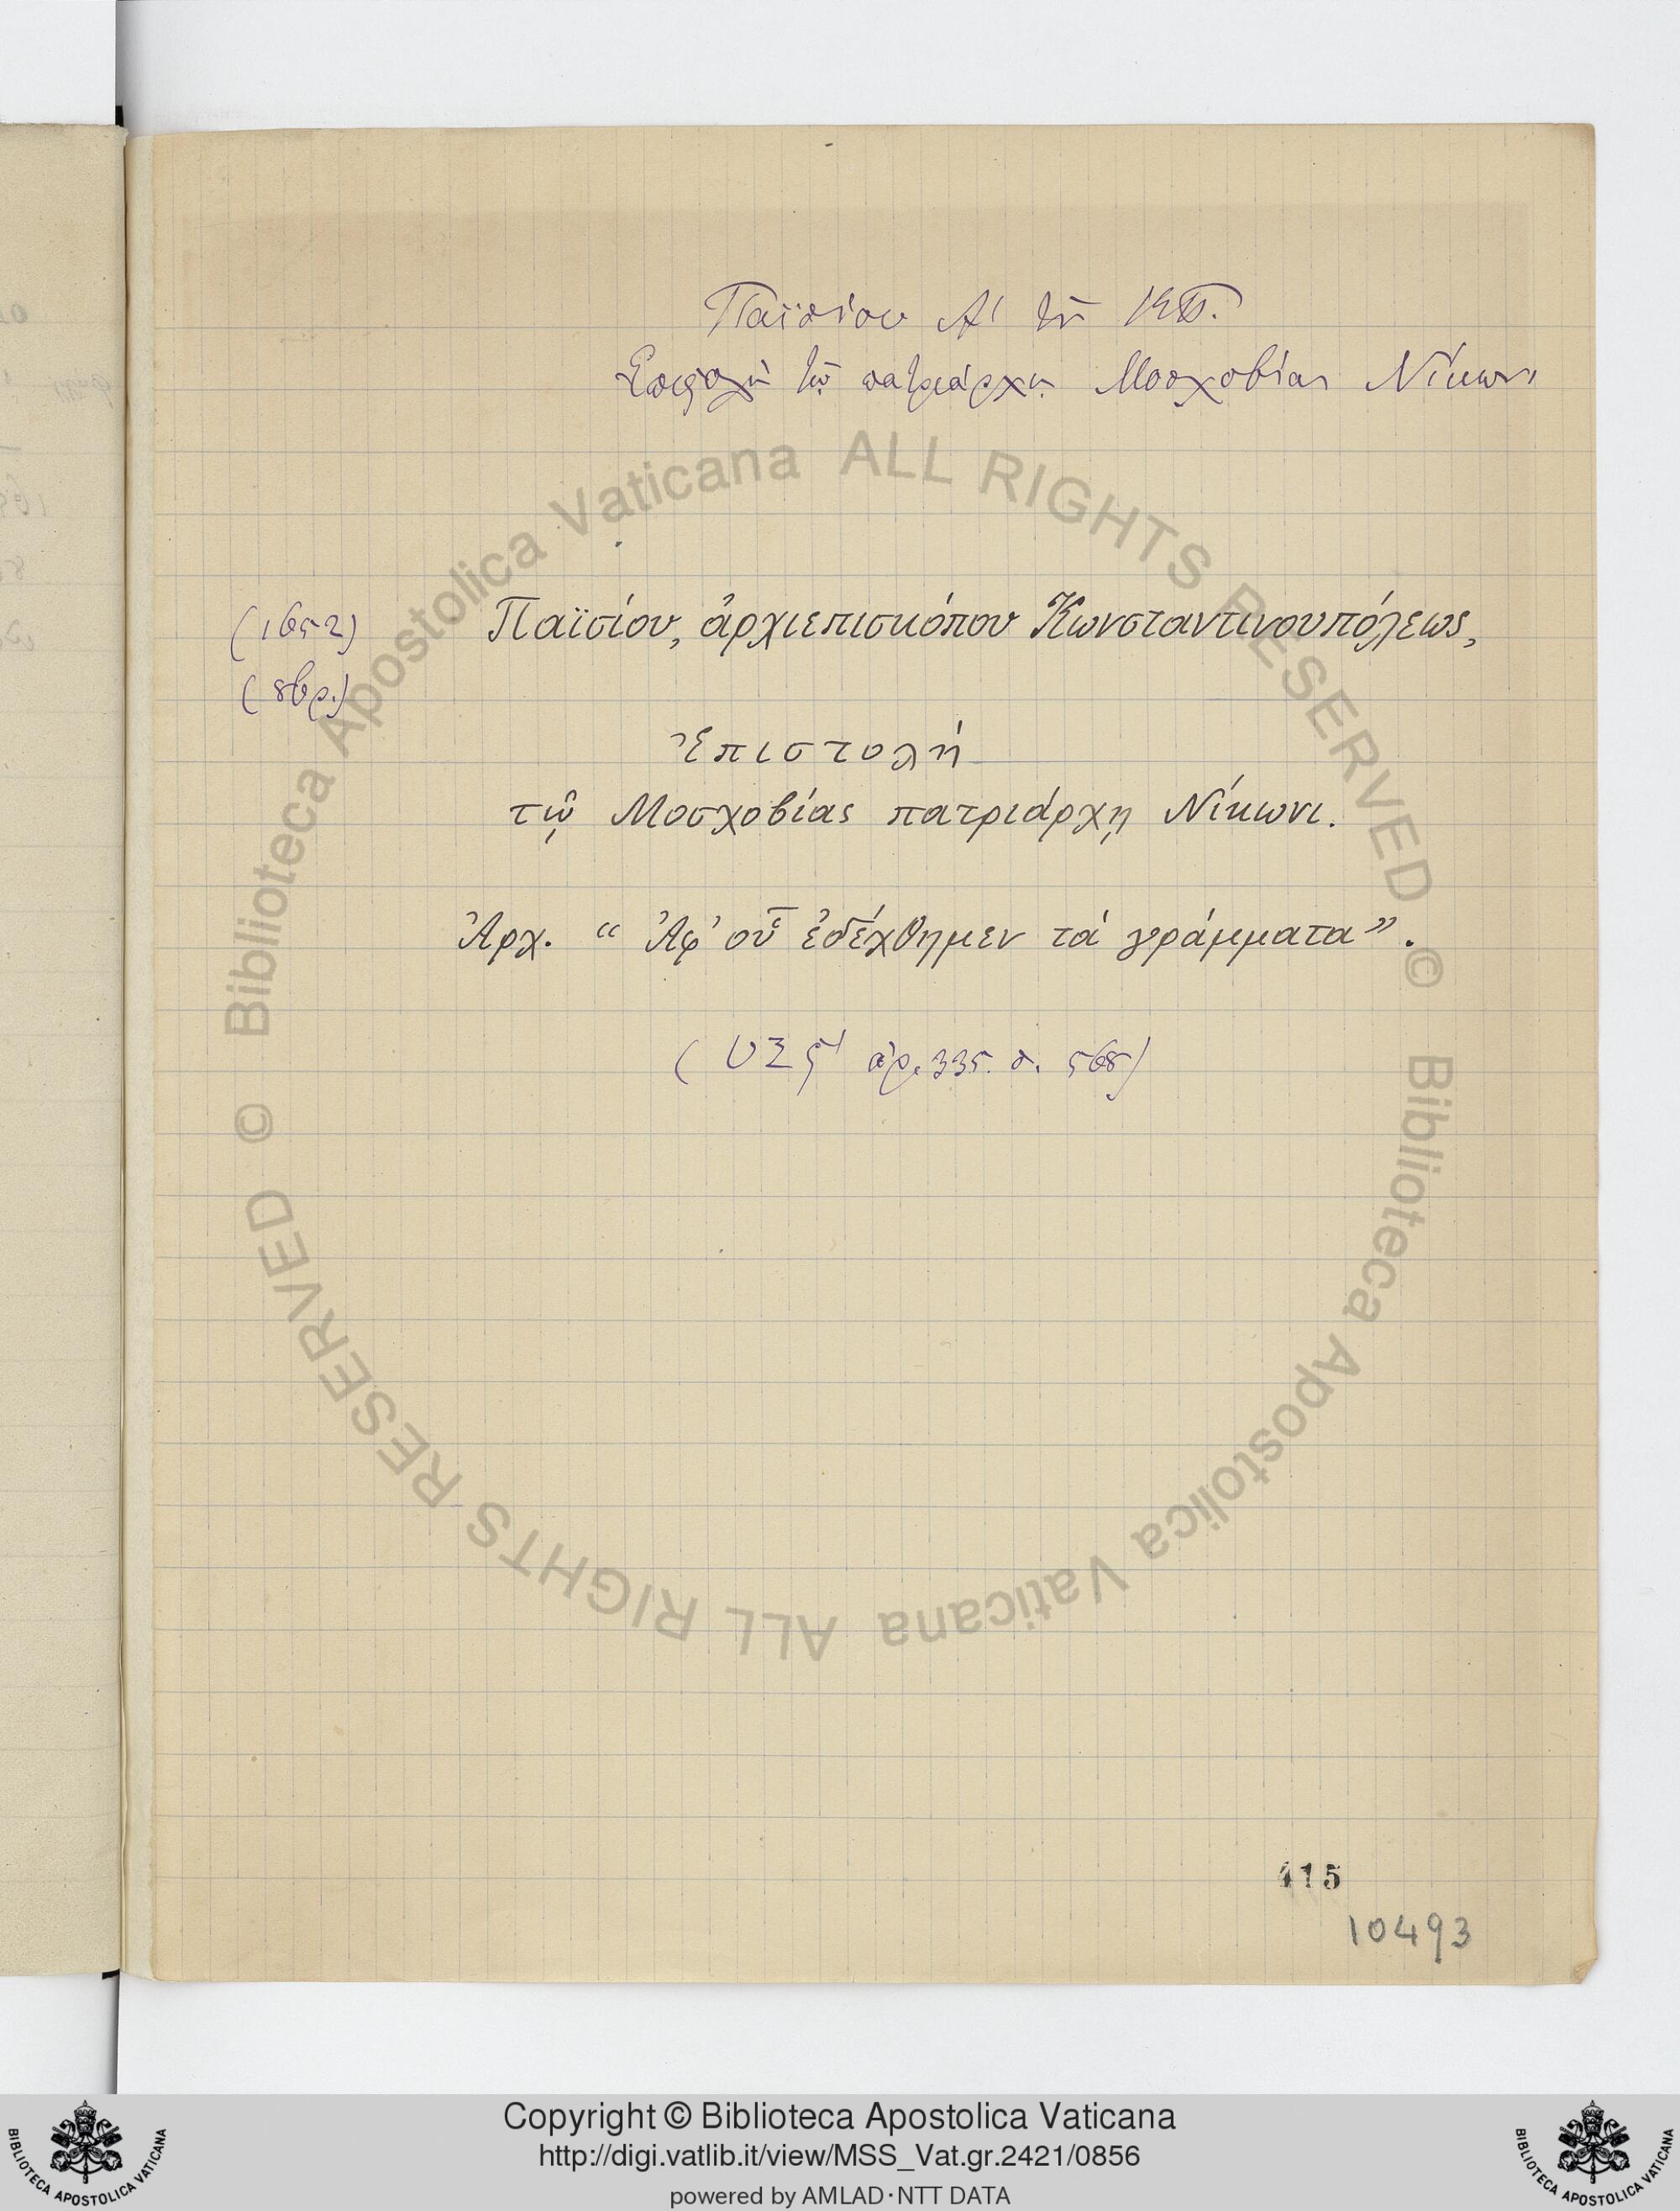 Παϊσίου Α' τοῦ ΚΠ.
Ἐπιστολὴ τῷ πατριάρχῃ Μοσχοβίας Νίκωνι
(1652) Παϊσίου, ἀρχιεπισκόπου Κωνσταντινουπόλεως,
(8βρ.)
Ἐπιστολή
τῷ Μοσχοβίας πατριάρχῃ Νίκωνι.
Ἀρχ. “ Ἀφ' οὗ ἐδέχθημεν τά γράμματα”.
ἀρ. 335. σ. 568)
415
10493
© Biblioteca Apostolica Vaticana ALL RIGHTS RESERVED
© Biblioteca Apostolica Vaticana ALL RIGHTS RESERVED
Copyright © Biblioteca Apostolica Vaticana
http://digi.vatlib.it/view/MSS_Vat.gr.2421/0856
powered by AMLAD·NTT DATA
BIBLIOTECA APOSTOLICA VATICANA
BIBLIOTECA APOSTOLICA VATICANA